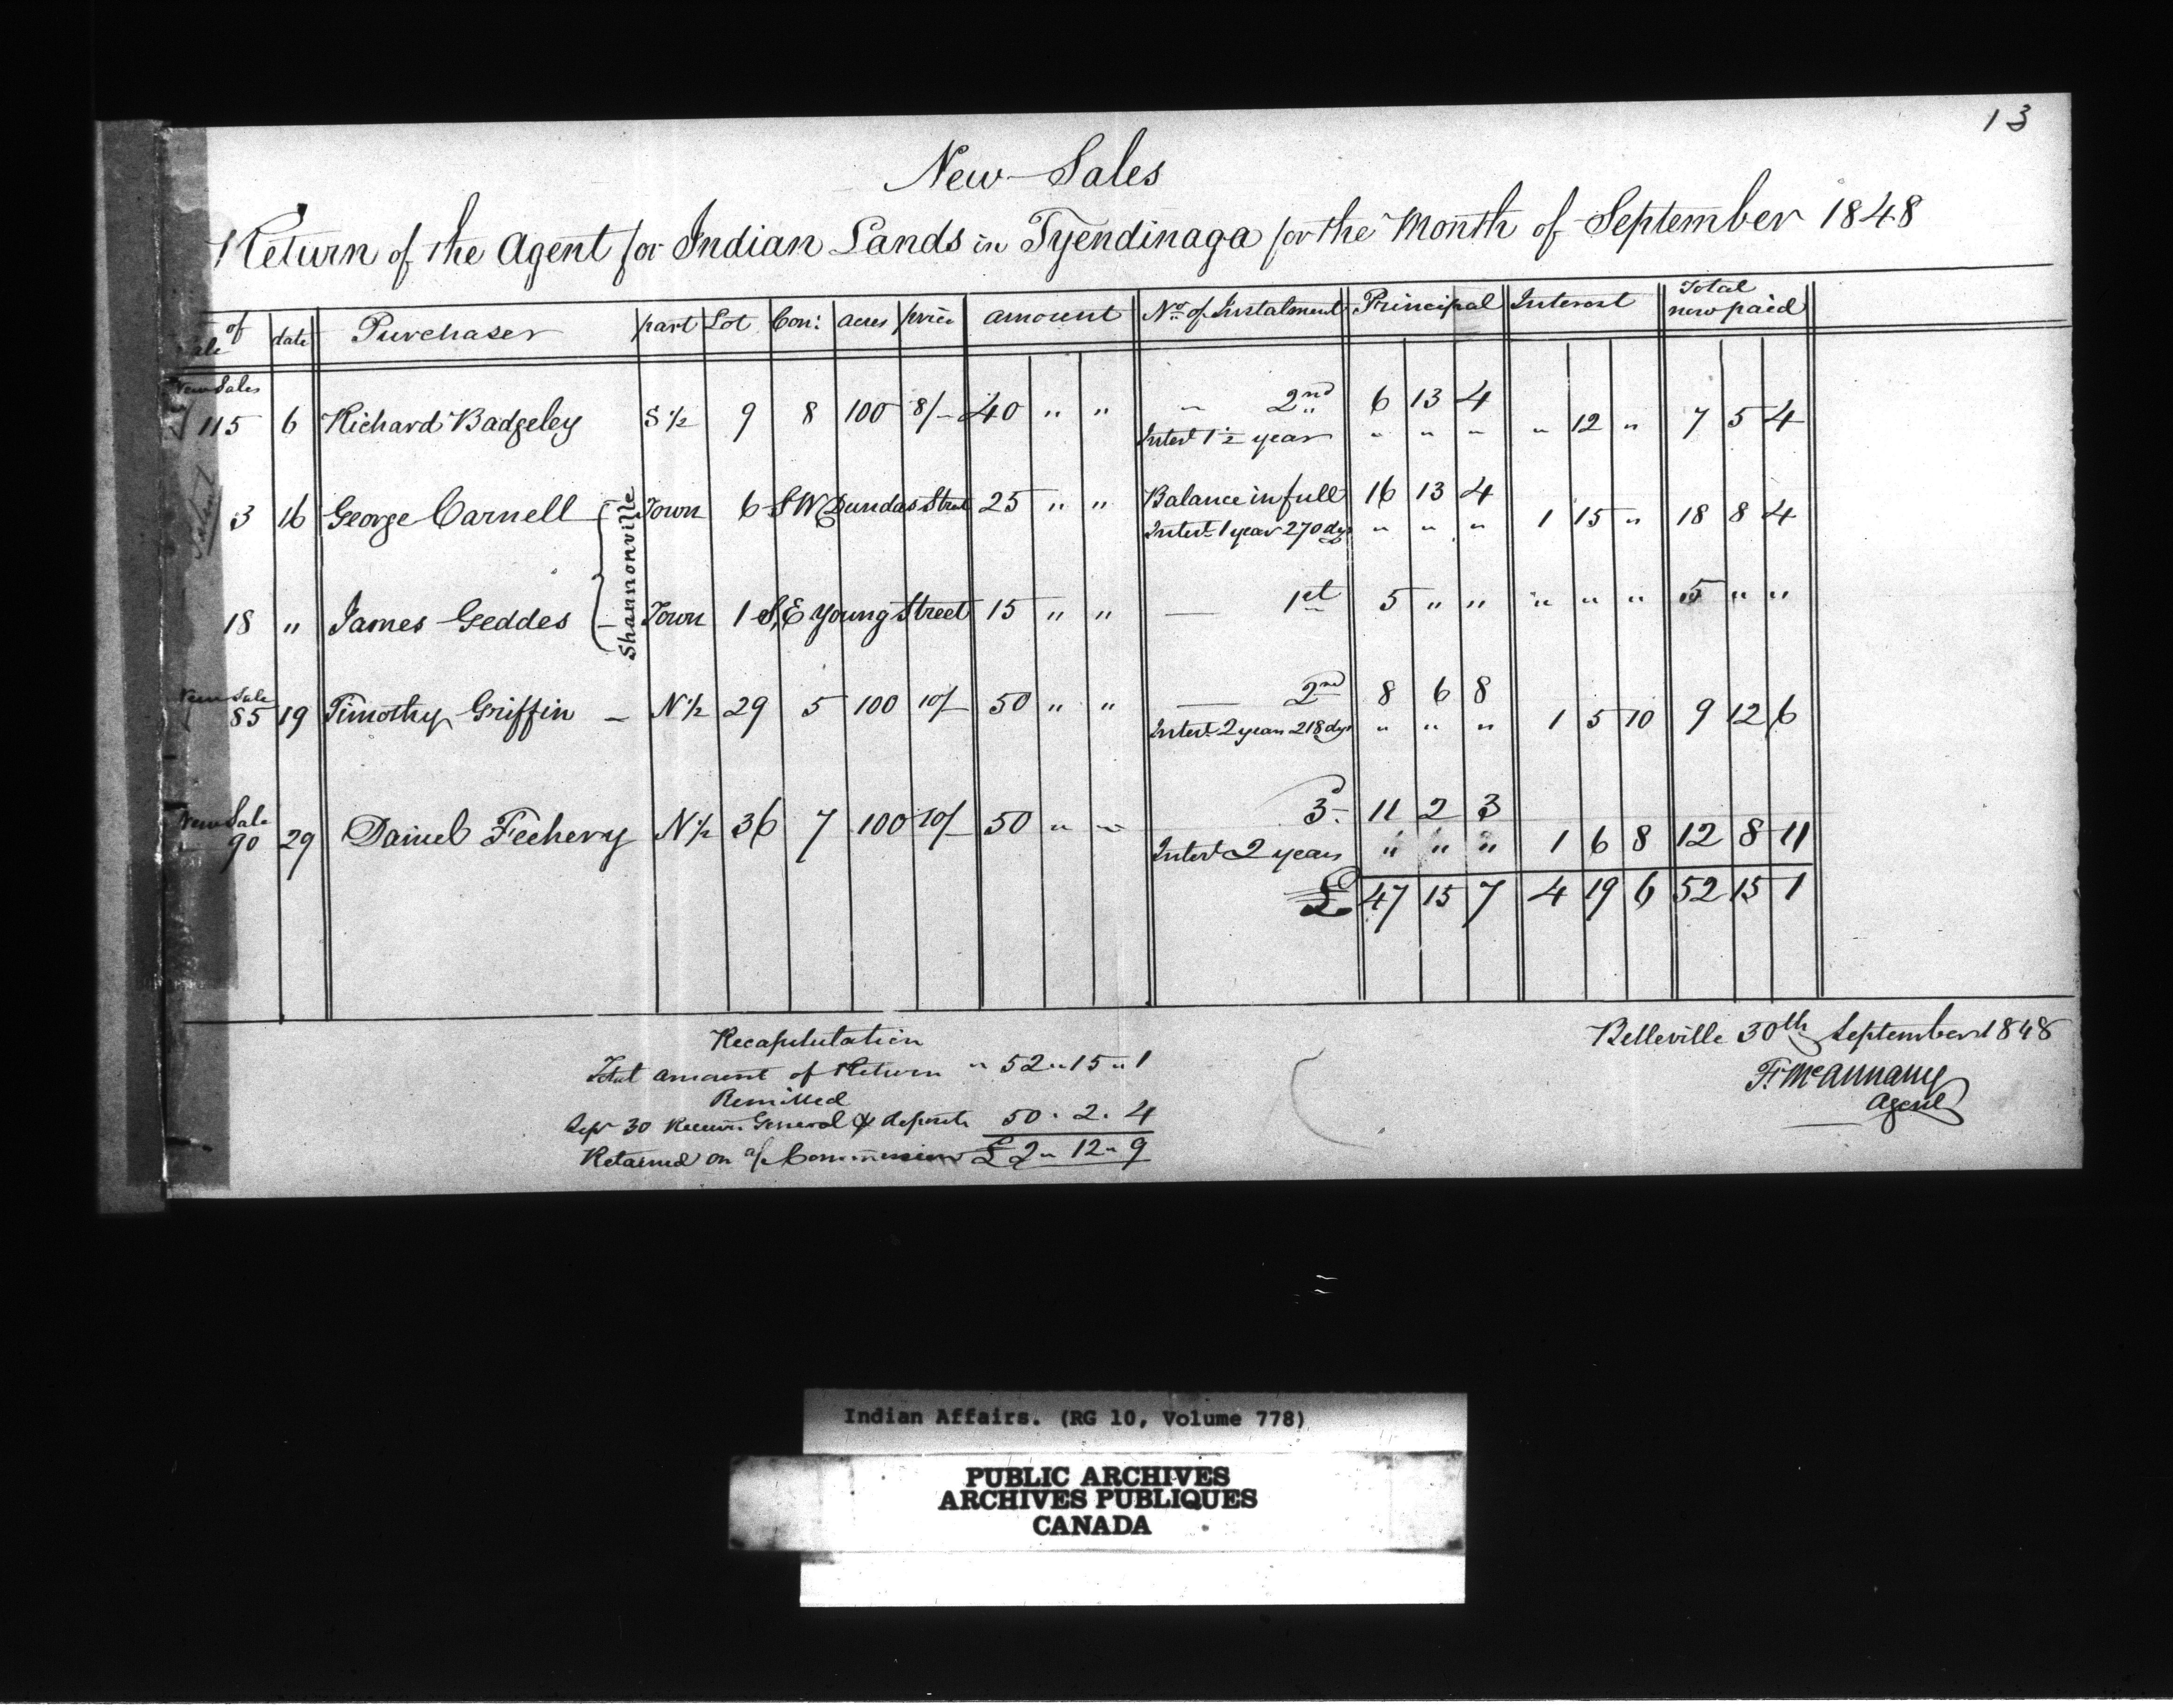 13
New Sales
Return of the Agent for Indian Lands in Tyendinaga for the Month of September 1848
of Sale | date | Purchaser | part | Lot | Con: | acres | price | amount | No. of Instalment | Principal | Interest | Total now paid
New Sales
115 | 6 | Richard Badgeley | S ½ | 9 | 8 | 100 | 8/- | 40 " " | " 2nd | 6 13 4 | " 12 " | 7 5 4
Interst 1½ year | " " "
3 | 16 | George Carnell | Town | 6 | S W Dundas Street | 25 " " | Balance in full | 16 13 4 | 1 15 " | 18 8 4
Interst 1 year 270 dys | " " "
Shannonville
18 | " | James Geddes | Town | 1 | S, E Young Street | 15 " " | 1st | 5 " " | " " " | 5 " "
New Sale
85 | 19 | Timothy Griffin | N ½ | 29 | 5 | 100 | 10/ | 50 " " | 2nd | 8 6 8 | 1 5 10 | 9 12 6
Interst 2 years 218 dys | " " "
New Sale
90 | 29 | Daniel Feehery | N ½ | 36 | 7 | 100 | 10/ | 50 " " | 3d | 11 2 3 | 1 6 8 | 12 8 11
Interst 2 years | " " "
£ 47 15 7 | 4 19 6 | 52 15 1
Recapitulation
Total amount of Return " 52 " 15 " 1
Remitted
Sepr 30 Receivr General & deposits 50 . 2 . 4
Retained on a/c Commission £ 2 " 12 " 9
Belleville 30th September 1848
Fs McAnnany
Agent
Indian Affairs. (RG 10, Volume 778)
PUBLIC ARCHIVES
ARCHIVES PUBLIQUES
CANADA